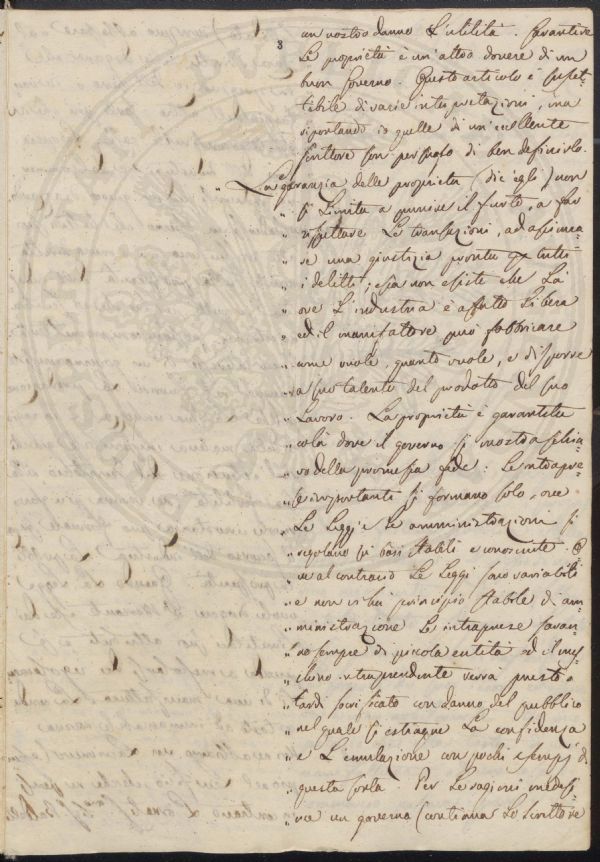 3
un nostro danno l'utilità. Garantire
le proprietà è un'altro dovere di un
buon Governo. Questo articolo è suscet-
tibile di varie interpretazioni, ma
riportando io quelle di un'eccellente
scrittore son persuaso di ben definirlo.
„ La garanzia delle proprietà (dic'egli) non
„ si limita a punire il furto, a far
„ rispettare le transazioni, ad assicura-
„ re una giustizia pronta per tutti
„ i delitti; essa non esiste che là
„ ove l'industria è affatto libera
„ ed il manifattore può fabbricare
„ come vuole, quanto vuole, e disporre
„ a suo talento del prodotto del suo
„ lavoro. La proprietà è garantita
„ colà dove il governo si mostra schia-
„ vo della promessa fede: le intrapre-
„ se importanti si formano solo, ove
„ le leggi e le amministrazioni si
„ regolano su basi stabili e conosciute. Co-
„ me al contrario le leggi sono variabili
„ e non vi ha principio stabile di am-
„ ministrazione le intraprese saran-
„ no sempre di piccola entità ed il me-
„ schino intraprendente verrà presto o
„ tardi sacrificato con danno del pubblico
„ nel quale si estingue la confidenza
„ e l'emulazione con pochi esempj di
„ questa sorta. Per le ragioni medesi-
„ me un governo (continua lo scrittore